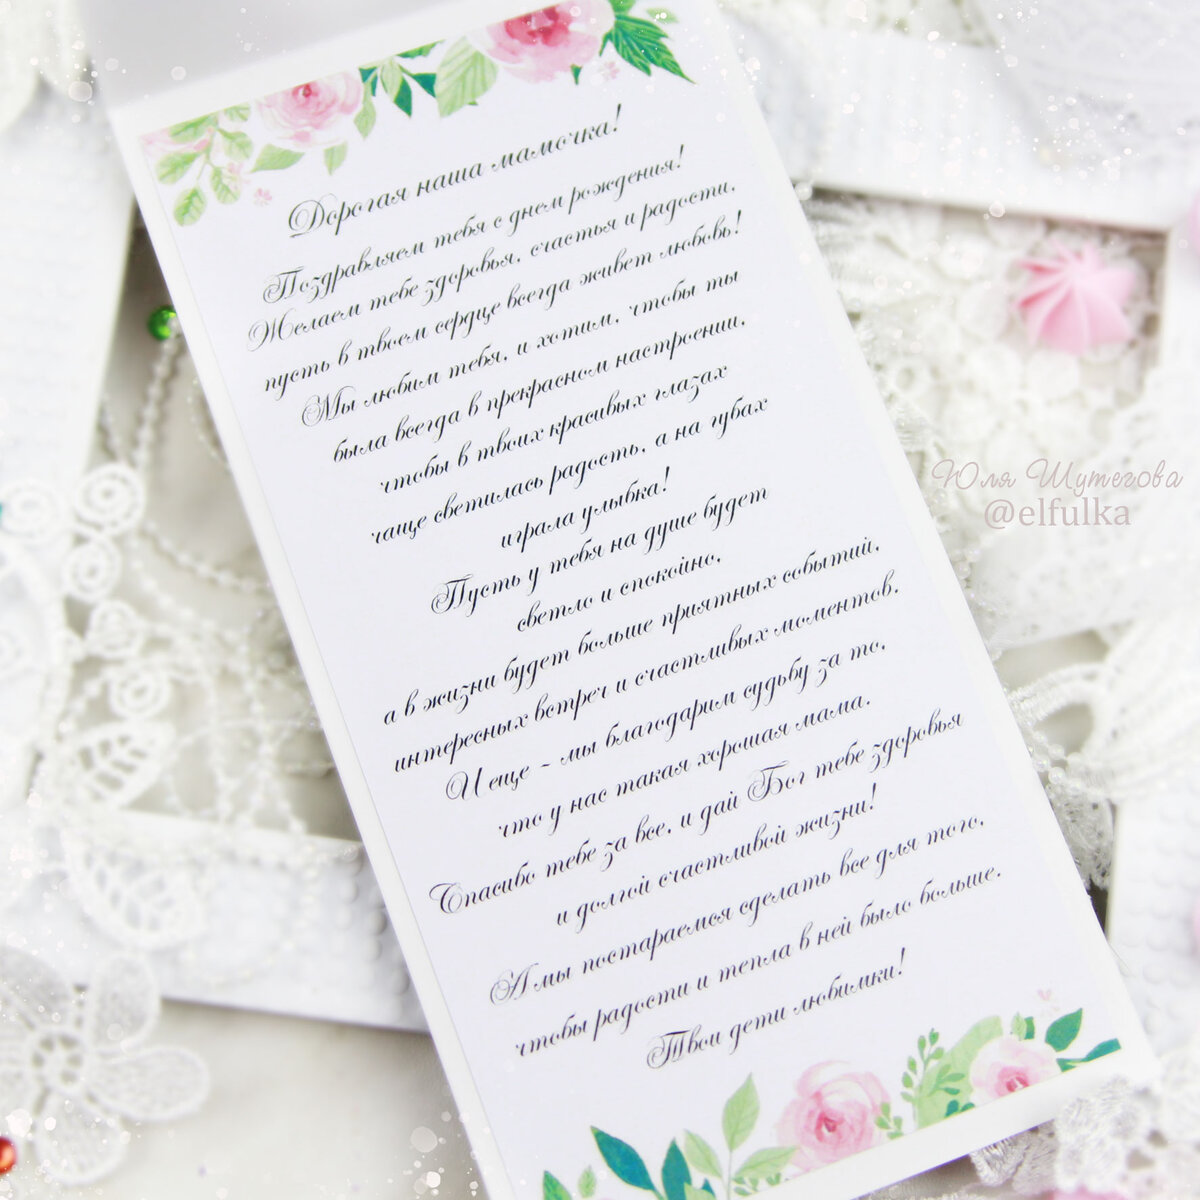 Дорогая наша мамочка!
Поздравляем тебя с днем рождения!
Желаем тебе здоровья, счастья и радости,
пусть в твоем сердце всегда живет любовь!
Мы любим тебя, и хотим, чтобы ты
была всегда в прекрасном настроении,
чтобы в твоих красивых глазах
чаще светилась радость, а на губах
играла улыбка!
Пусть у тебя на душе будет
светло и спокойно,
а в жизни будет больше приятных событий,
интересных встреч и счастливых моментов.
И еще - мы благодарим судьбу за то,
что у нас такая хорошая мама.
Спасибо тебе за все, и дай Бог тебе здоровья
и долгой счастливой жизни!
А мы постараемся сделать все для того,
чтобы радости и тепла в ней было больше.
Твои дети любимки!
Юля Шутегова
@elfulka